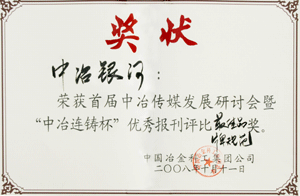 奖状
中冶银河：
荣获首届中冶传媒发展研讨会暨
“中冶连铸杯”优秀报刊评比最佳新
闻奖。
中国冶金科工集团公司
二〇〇八年十月十一日